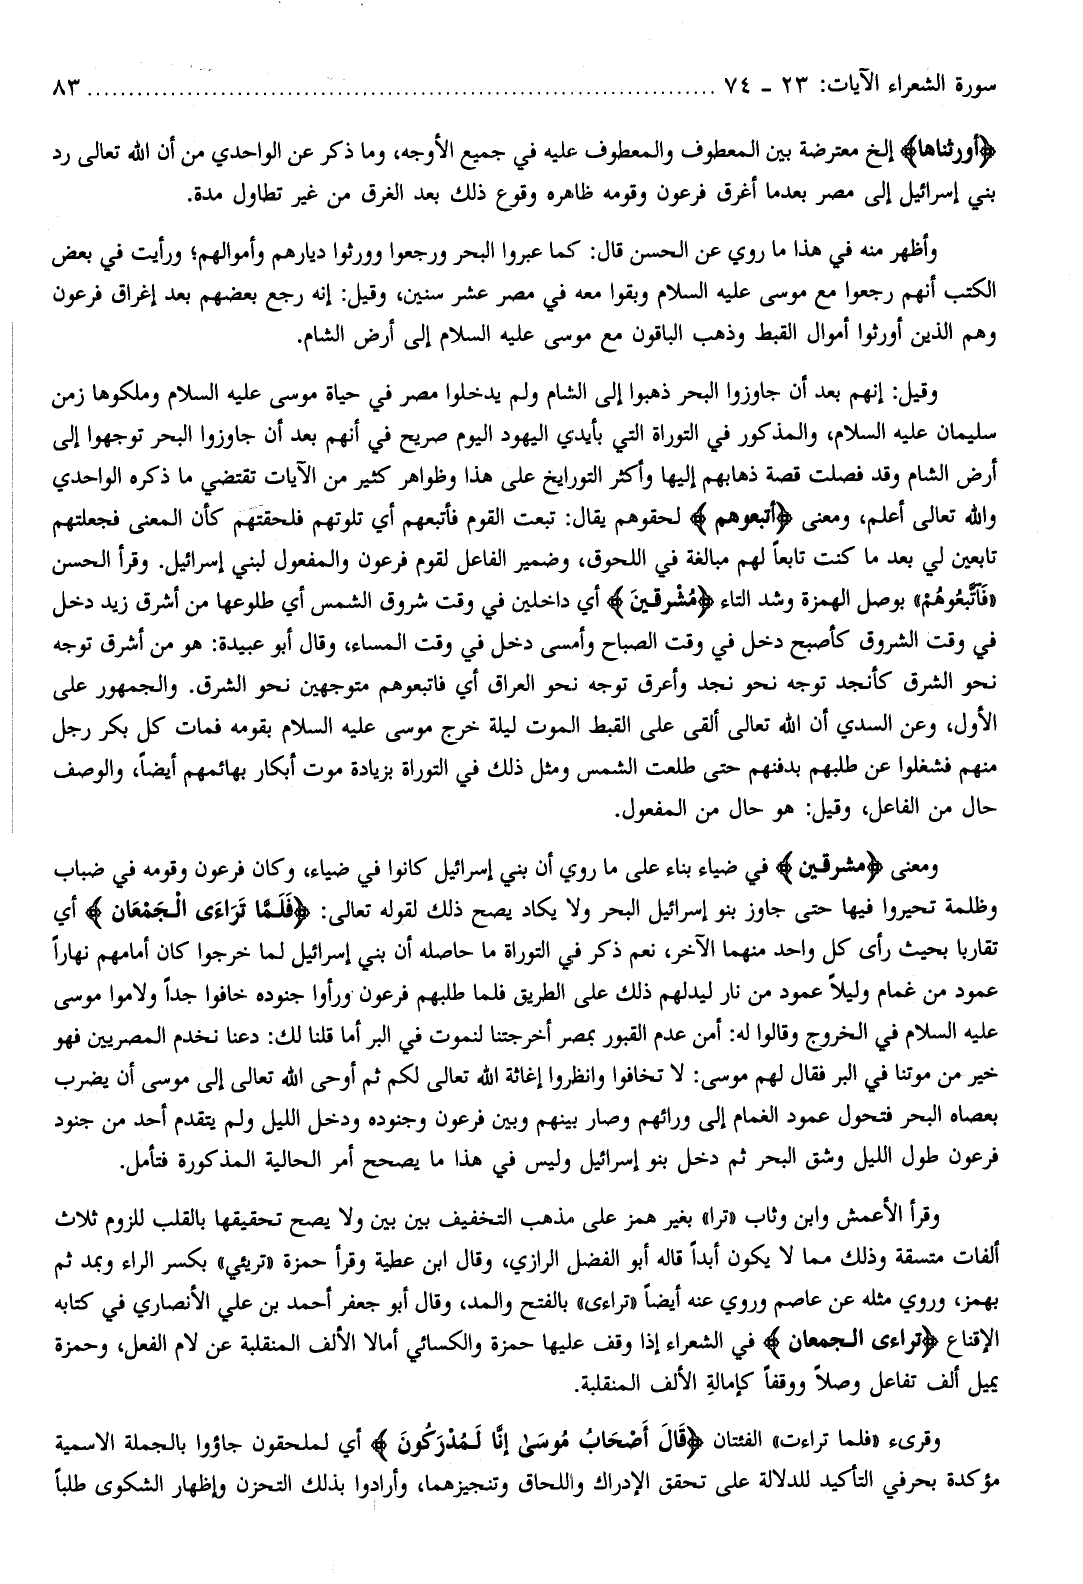 سورة الشعراء الآيات: ٢٣ ـ ٧٤ ................................................................ ٨٣
﴿أورثناها﴾ إلخ معترضة بين المعطوف والمعطوف عليه في جميع الأوجه، وما ذكر عن الواحدي من أن الله تعالى رد
بني إسرائيل إلى مصر بعدما أغرق فرعون وقومه ظاهره وقوع ذلك بعد الغرق من غير تطاول مدة.
وأظهر منه في هذا ما روي عن الحسن قال: كما عبروا البحر ورجعوا وورثوا ديارهم وأموالهم؛ ورأيت في بعض
الكتب أنهم رجعوا مع موسى عليه السلام وبقوا معه في مصر عشر سنين، وقيل: إنه رجع بعضهم بعد إغراق فرعون
وهم الذين أورثوا أموال القبط وذهب الباقون مع موسى عليه السلام إلى أرض الشام.
وقيل: إنهم بعد أن جاوزوا البحر ذهبوا إلى الشام ولم يدخلوا مصر في حياة موسى عليه السلام وملكوها زمن
سليمان عليه السلام، والمذكور في التوراة التي بأيدي اليهود اليوم صريح في أنهم بعد أن جاوزوا البحر توجهوا إلى
أرض الشام وقد فصلت قصة ذهابهم إليها وأكثر التورايخ على هذا وظواهر كثير من الآيات تقتضي ما ذكره الواحدي
والله تعالى أعلم، ومعنى ﴿أتبعوهم﴾ لحقوهم يقال: تبعت القوم فأتبعهم أي تلوتهم فلحقتهم كأن المعنى فجعلتهم
تابعين لي بعد ما كنت تابعاً لهم مبالغة في اللحوق، وضمير الفاعل لقوم فرعون والمفعول لبني إسرائيل. وقرأ الحسن
«فَاتَّبَعُوهُمْ» بوصل الهمزة وشد التاء ﴿مُشْرِقِينَ﴾ أي داخلين في وقت شروق الشمس أي طلوعها من أشرق زيد دخل
في وقت الشروق كأصبح دخل في وقت الصباح وأمسى دخل في وقت المساء، وقال أبو عبيدة: هو من أشرق توجه
نحو الشرق كأنجد توجه نحو نجد وأعرق توجه نحو العراق أي فاتبعوهم متوجهين نحو الشرق. والجمهور على
الأول، وعن السدي أن الله تعالى ألقى على القبط الموت ليلة خرج موسى عليه السلام بقومه فمات كل بكر رجل
منهم فشغلوا عن طلبهم بدفنهم حتى طلعت الشمس ومثل ذلك في التوراة بزيادة موت أبكار بهائمهم أيضاً، والوصف
حال من الفاعل، وقيل: هو حال من المفعول.
ومعنى ﴿مشرقين﴾ في ضياء بناء على ما روي أن بني إسرائيل كانوا في ضياء، وكان فرعون وقومه في ضباب
وظلمة تحيروا فيها حتى جاوز بنو إسرائيل البحر ولا يكاد يصح ذلك لقوله تعالى: ﴿فَلَمَّا تَرَاءَى الْجَمْعَان﴾ أي
تقاربا بحيث رأى كل واحد منهما الآخر، نعم ذكر في التوراة ما حاصله أن بني إسرائيل لما خرجوا كان أمامهم نهاراً
عمود من غمام وليلاً عمود من نار ليدلهم ذلك على الطريق فلما طلبهم فرعون ورأوا جنوده خافوا جداً ولاموا موسى
عليه السلام في الخروج وقالوا له: أمن عدم القبور بمصر أخرجتنا لنموت في البر أما قلنا لك: دعنا نخدم المصريين فهو
خير من موتنا في البر فقال لهم موسى: لا تخافوا وانظروا إغاثة الله تعالى لكم ثم أوحى الله تعالى إلى موسى أن يضرب
بعصاه البحر فتحول عمود الغمام إلى ورائهم وصار بينهم وبين فرعون وجنوده ودخل الليل ولم يتقدم أحد من جنود
فرعون طول الليل وشق البحر ثم دخل بنو إسرائيل وليس في هذا ما يصحح أمر الحالية المذكورة فتأمل.
وقرأ الأعمش وابن وثاب «ترا» بغير همز على مذهب التخفيف بين بين ولا يصح تحقيقها بالقلب للزوم ثلاث
ألفات متسقة وذلك مما لا يكون أبداً قاله أبو الفضل الرازي، وقال ابن عطية وقرأ حمزة «تريئي» بكسر الراء وبمد ثم
بهمز، وروي مثله عن عاصم وروي عنه أيضاً «تراءى» بالفتح والمد، وقال أبو جعفر أحمد بن علي الأنصاري في كتابه
الإقناع ﴿تراءى الجمعان﴾ في الشعراء إذا وقف عليها حمزة والكسائي أمالا الألف المنقلبة عن لام الفعل، وحمزة
يميل ألف تفاعل وصلاً ووقفاً كإمالةِ الألف المنقلبة.
وقرىء «فلما تراءت» الفئتان ﴿قَالَ أَصْحَابُ مُوسَىٰ إنَّا لَمُدْرَكُونَ﴾ أي لملحقون جاؤوا بالجملة الاسمية
مؤكدة بحرفي التأكيد للدلالة على تحقق الإدراك واللحاق وتنجيزهما، وأرادوا بذلك التحزن وإظهار الشكوى طلباً